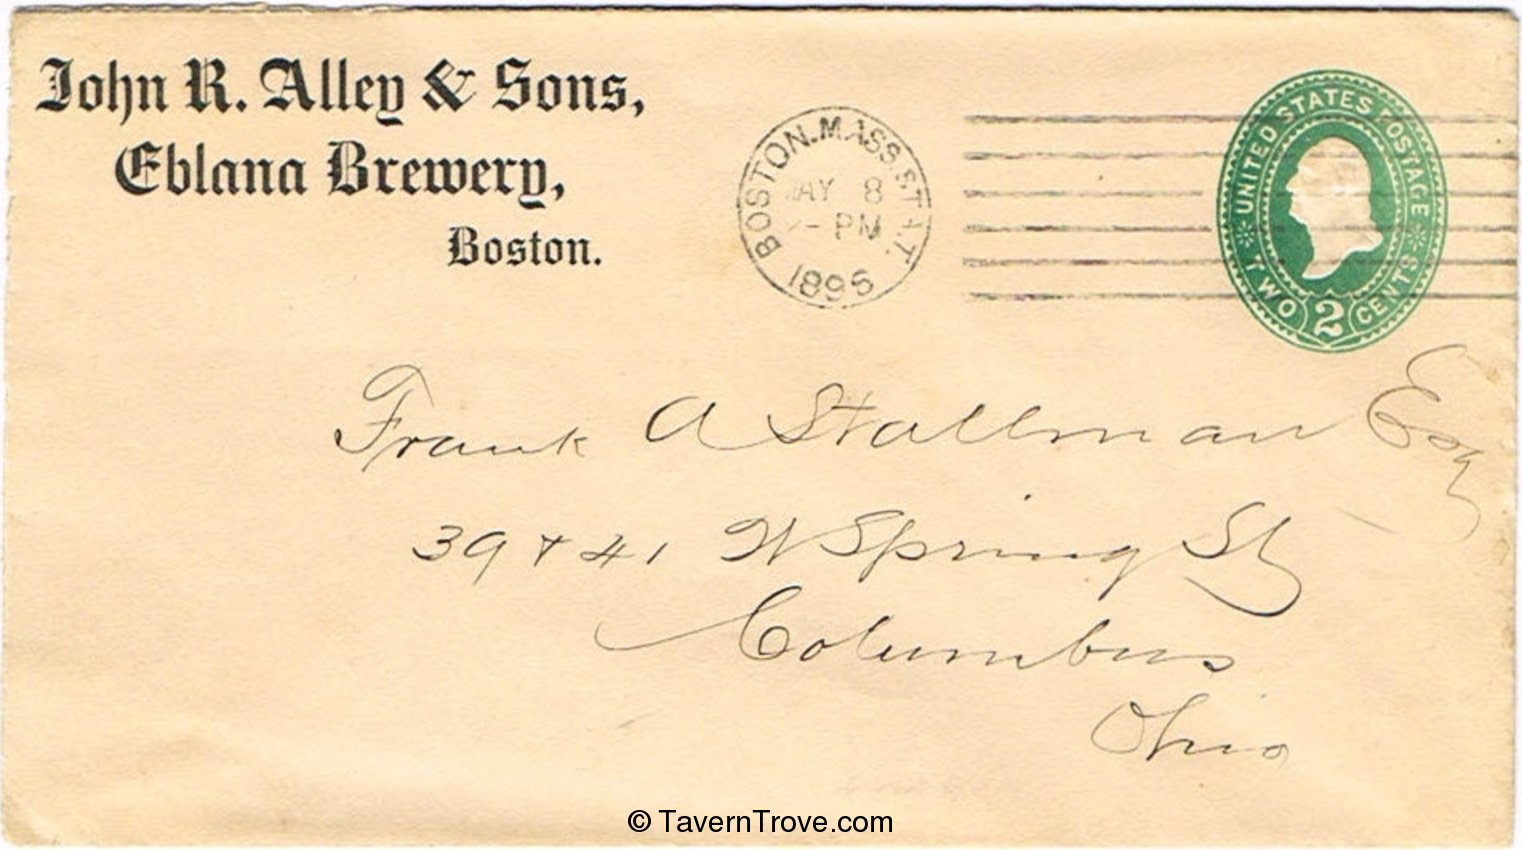 John R. Alley & Sons,
Eblana Brewery,
Boston.
BOSTON. MASS. STA.T.
MAY 8
PM
1896
UNITED STATES POSTAGE
TWO 2 CENTS
Frank A Stallman Esq
39 & 41 W Spring St
Columbus
Ohio
© TavernTrove.com